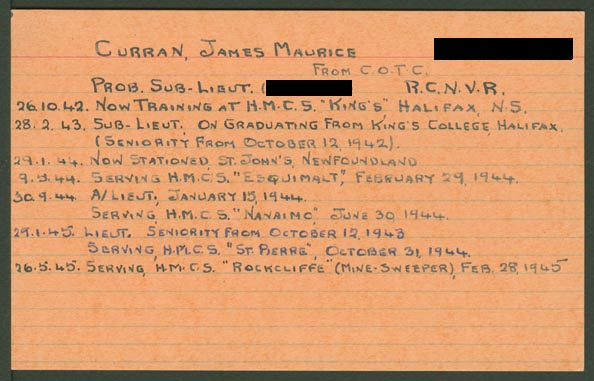 CURRAN, JAMES MAURICE
FROM C.O.T.C.
PROB. SUB-LIEUT. ( R.C.N.V.R.
26.10.42. NOW TRAINING AT H.M.C.S. "KING'S" HALIFAX, N.S.
28.2.43. SUB-LIEUT. ON GRADUATING FROM KING'S COLLEGE, HALIFAX.
(SENIORITY FROM OCTOBER 12, 1942).
29.1.44. NOW STATIONED, ST. JOHN'S, NEWFOUNDLAND
9.3.44. SERVING H.M.C.S. "ESQUIMALT", FEBRUARY 29, 1944.
30.9.44. A/LIEUT., JANUARY 15, 1944.
SERVING, H.M.C.S. "NANAIMO", JUNE 30, 1944.
29.1.45. LIEUT. SENIORITY FROM OCTOBER 12, 1943
SERVING, H.M.C.S. "ST. PIERRE", OCTOBER 31, 1944.
26.5.45. SERVING, H.M.C.S. "ROCKCLIFFE" (MINE-SWEEPER), FEB. 28, 1945